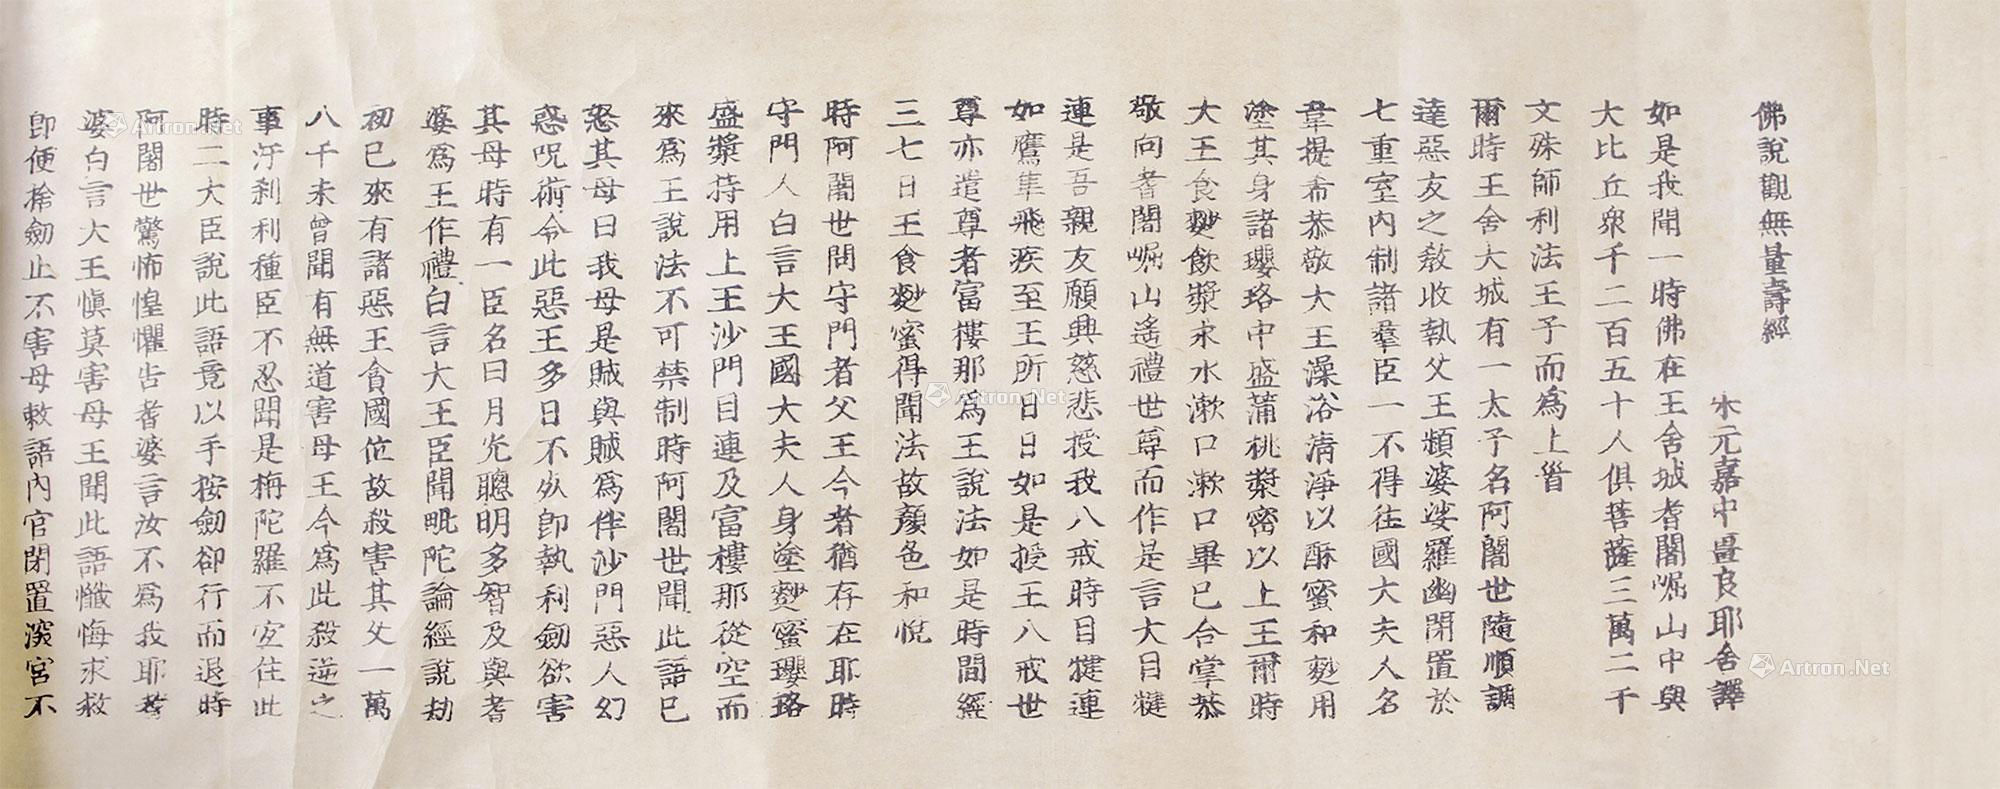 佛說觀無量壽經
宋元嘉中畺良耶舍譯
如是我聞一時佛在王舍城耆闍崛山中與
大比丘眾千二百五十人俱菩薩三萬二千
文殊師利法王子而為上首
爾時王舍大城有一太子名阿闍世隨順調
達惡友之教收執父王頻婆娑羅幽閉置於
七重室內制諸羣臣一不得往國大夫人名
韋提希恭敬大王澡浴清淨以酥蜜和麨用
塗其身諸瓔珞中盛蒲桃漿密以上王爾時
大王食麨飲漿求水漱口漱口畢已合掌恭
敬向耆闍崛山遙禮世尊而作是言大目犍
連是吾親友願興慈悲授我八戒時目犍連
如鷹隼飛疾至王所日日如是授王八戒世
尊亦遣尊者富樓那為王說法如是時間經
三七日王食麨蜜得聞法故顏色和悅
時阿闍世問守門者父王今者猶存在耶時
守門人白言大王國大夫人身塗麨蜜瓔珞
盛漿持用上王沙門目連及富樓那從空而
來為王說法不可禁制時阿闍世聞此語已
怒其母曰我母是賊與賊為伴沙門惡人幻
惑呪術令此惡王多日不死即執利劒欲害
其母時有一臣名曰月光聰明多智及與耆
婆為王作禮白言大王臣聞毗陀論經說劫
初已來有諸惡王貪國位故殺害其父一萬
八千未曾聞有無道害母王今為此殺逆之
事汙刹利種臣不忍聞是栴陀羅不宜住此
時二大臣說此語竟以手按劒卻行而退時
阿闍世驚怖惶懼告耆婆言汝不為我耶耆
婆白言大王慎莫害母王聞此語懺悔求救
即便捨劒止不害母敕語內官閉置深宮不
Artron.Net
Artron.Net
Artron.Net